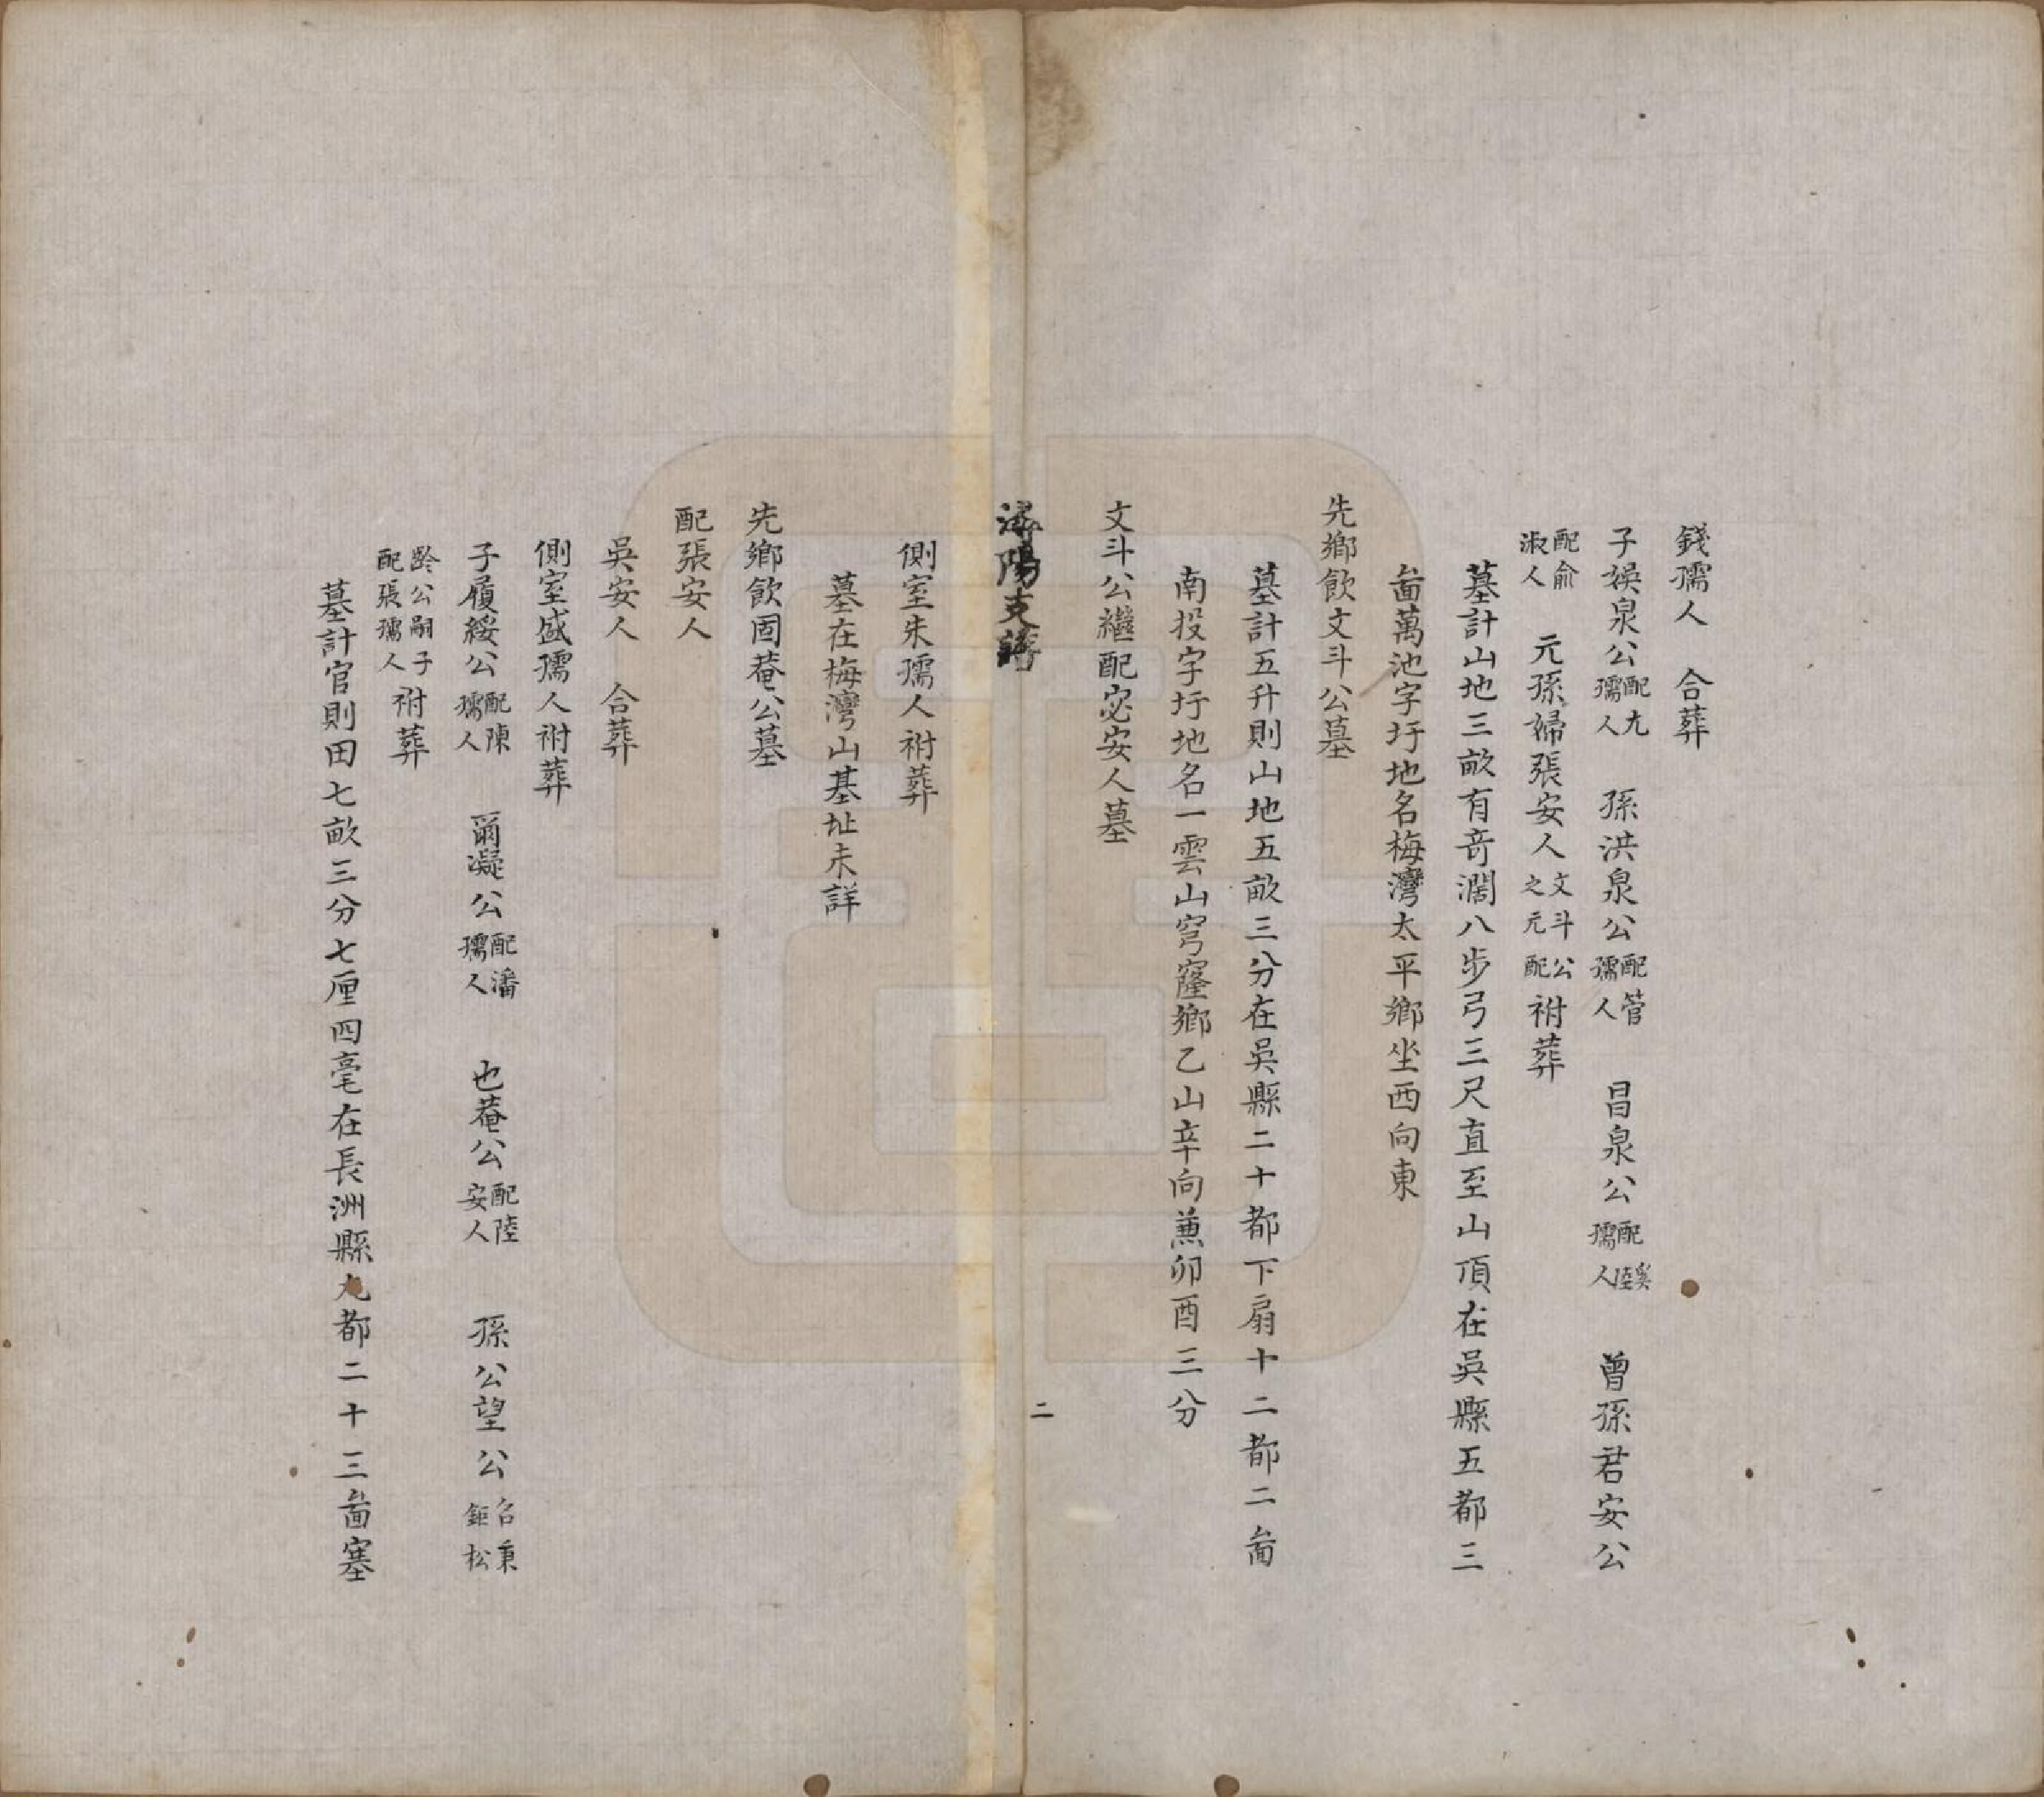 錢孺人　合葬
子娛泉公配尤孺人　孫洪泉公配管孺人　昌泉公配奚陸孺人　曾孫君安公
配俞淑人　元孫婦張安人文斗公之元配祔葬
墓計山地三畝有竒濶八步弓三尺直至山頂在吳縣五都三
啚萬池字圩地名梅灣太平鄉坐西向東
先鄉飲文斗公墓
墓計五升則山地五畝三分在吳縣二十都下扇十二都二啚
南投字圩地名一雲山穹窿鄉乙山辛向兼卯酉三分
文斗公繼配宓安人墓
陽支譜
二
側室朱孺人祔葬
墓在梅灣山基址未詳
先鄉飲固菴公墓
配張安人
吳安人　合葬
側室盛孺人祔葬
子履綏公配陳孺人　爾凝公配潘孺人　也菴公配陸安人　孫公望公名秉鉅松
齡公嗣子配張孺人祔葬
墓計官則田七畝三分七厘四毫在長洲縣九都二十三啚塞